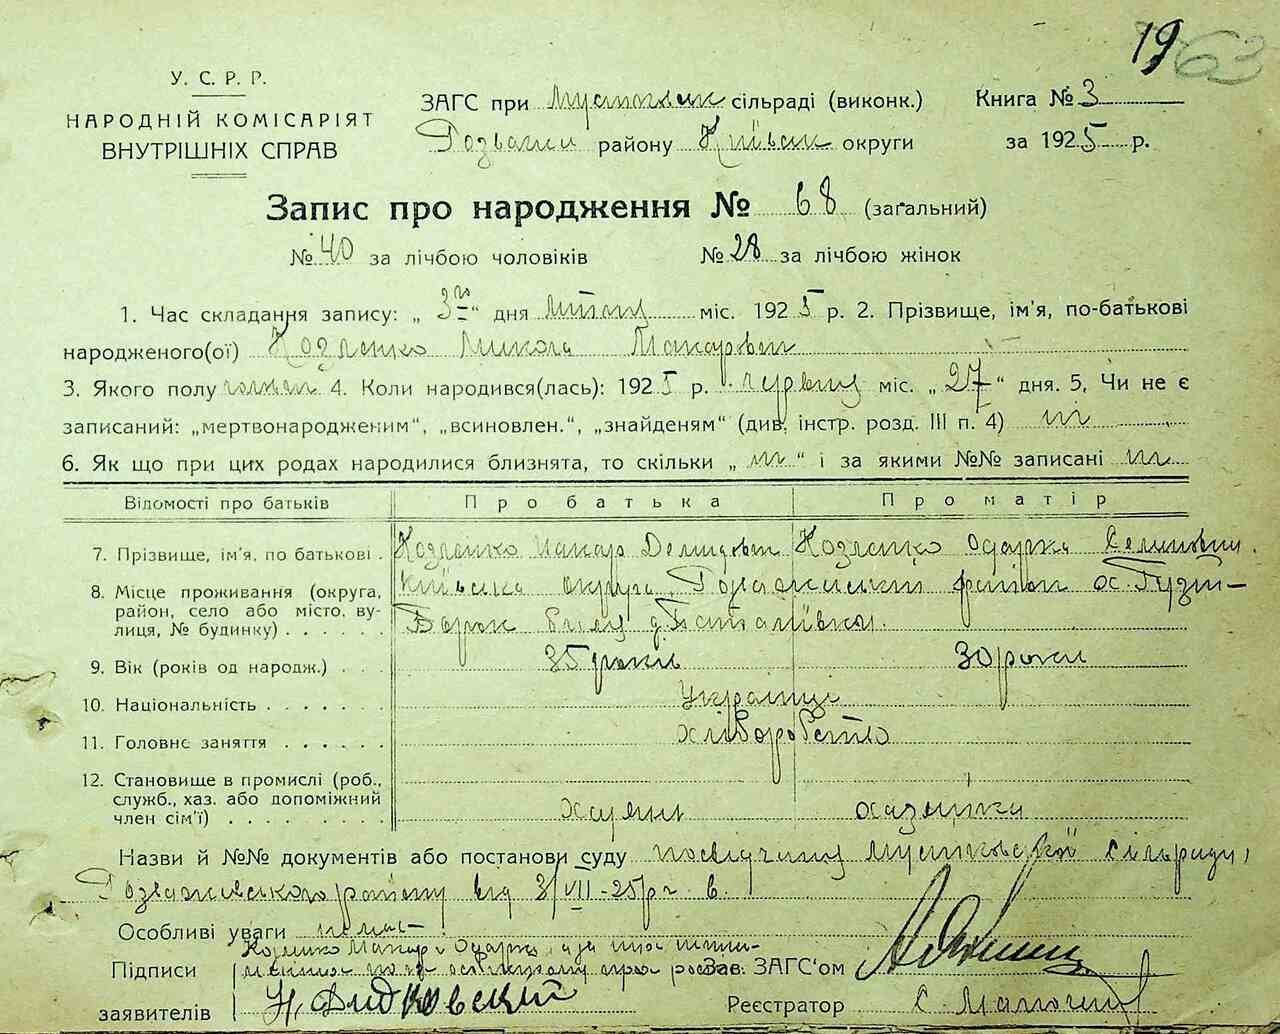 19 63
У. С. Р. Р.
НАРОДНІЙ КОМІСАРІЯТ
ВНУТРІШНІХ СПРАВ
ЗАГС при сільраді (виконк.)
району Київськ округи
Книга № 3
за 1925 р.
Запис про народження № 68 (загальний)
№ 40 за лічбою чоловіків № 28 за лічбою жінок
1. Час складання запису: „ 3го “ дня липня міс. 1925 р. 2. Прізвище, ім'я, по-батькові
народженого(ої) Козленко Микола Макарович
3. Якого полу 4. Коли народився(лась): 1925 р. червня міс. „ 27 “ дня. 5, Чи не є
записаний: „мертвонародженим“, „всиновлен.“, „знайденям“ (див, інстр. розд. III п. 4) ні
6. Як що при цих родах народилися близнята, то скільки „ ні “ і за якими №№ записані ні
Відомості про батьків Про батька Про матір
7. Прізвище, ім'я, по батькові . Козленко Макар Демидович Козленко Одарка
8. Місце проживання (округа, район, село або місто, вулиця, № будинку) Київська округа, район
9. Вік (років од народж.) . . . 35 років 30 роки
10. Національність . . . . . . . Українці
11. Головне заняття . . . . . . хліборобство
12. Становище в промислі (роб., служб., хаз. або допоміжний член сім'ї) . . . . . . . . хазяїн хазяйка
Назви й №№ документів або постанови суду сільради,
Розважівського району від 3/VII-25 р.
Особливі уваги немає
Козленко Макар і Одарка, а за них
Підписи
заявителів
Зав. ЗАГС'ом
Реєстратор С.